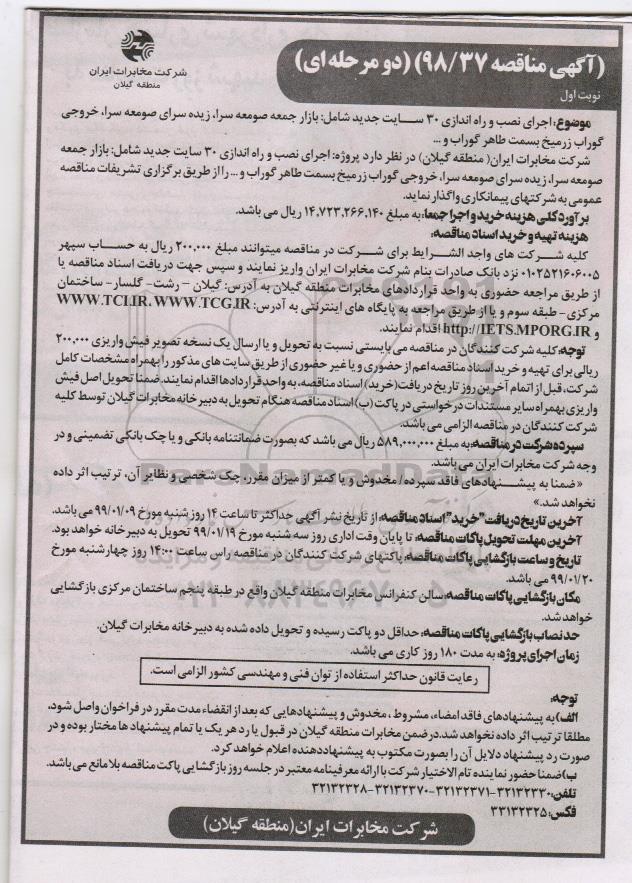 شرکت مخابرات ایران
منطقه گیلان
(آگهی مناقصه ۹۸/۳۷) (دو مرحله ای)
نوبت اول
موضوع: اجرای نصب و راه اندازی ۳۰ سایت جدید شامل: بازار جمعه صومعه سرا، زیده سرای صومعه سرا، خروجی
گوراب زرمیخ بسمت طاهر گوراب و ...
شرکت مخابرات ایران( منطقه گیلان) در نظر دارد پروژه: اجرای نصب و راه اندازی ۳۰ سایت جدید شامل: بازار جمعه
صومعه سرا، زیده سرای صومعه سرا، خروجی گوراب زرمیخ بسمت طاهر گوراب و ... را از طریق برگزاری تشریفات مناقصه
عمومی به شرکتهای پیمانکاری واگذار نماید.
برآورد کلی هزینه خرید و اجرا جمعا: به مبلغ ۱۴,۷۲۳,۲۶۶,۱۴۰ ریال می باشد.
هزینه تهیه و خرید اسناد مناقصه:
کلیه شرکت های واجد الشرایط برای شرکت در مناقصه میتوانند مبلغ ۲۰۰,۰۰۰ ریال به حساب سپهر
۰۱۰۲۵۲۱۶۰۶۰۰۵ نزد بانک صادرات بنام شرکت مخابرات ایران واریز نمایند و سپس جهت دریافت اسناد مناقصه یا
از طریق مراجعه حضوری به واحد قراردادهای مخابرات منطقه گیلان به آدرس: گیلان - رشت- گلسار- ساختمان
مرکزی- طبقه سوم و یا از طریق مراجعه به پایگاه های اینترنتی به آدرس: WWW.TCI.IR، WWW.TCG.IR
و http://IETS.MPORG.IR اقدام نمایند.
توجه: کلیه شرکت کنندگان در مناقصه می بایستی نسبت به تحویل و یا ارسال یک نسخه تصویر فیش واریزی ۲۰۰,۰۰۰
ریالی برای تهیه و خرید اسناد مناقصه اعم از حضوری و یا غیر حضوری از طریق سایت های مذکور را بهمراه مشخصات کامل
شرکت، قبل از اتمام آخرین روز تاریخ دریافت(خرید) اسناد مناقصه، به واحد قراردادها اقدام نمایند. ضمنا تحویل اصل فیش
واریزی بهمراه سایر مستندات درخواستی در پاکت (ب) اسناد مناقصه هنگام تحویل به دبیر خانه مخابرات گیلان توسط کلیه
شرکت کنندگان در مناقصه الزامی می باشد.
سپرده شرکت در مناقصه: به مبلغ ۵۸۹,۰۰۰,۰۰۰ ریال می باشد که بصورت ضمانتنامه بانکی و یا چک بانکی تضمینی و در
وجه شرکت مخابرات ایران می باشد.
« ضمنا به پیشنهادهای فاقد سپرده/ مخدوش و یا کمتر از میزان مقرر، چک شخصی و نظایر آن، ترتیب اثر داده
نخواهد شد.»
آخرین تاریخ دریافت "خرید" اسناد مناقصه: از تاریخ نشر آگهی حداکثر تا ساعت ۱۴ روز شنبه مورخ ۹۹/۰۱/۰۹ می باشد.
آخرین مهلت تحویل پاکات مناقصه: تا پایان وقت اداری روز سه شنبه مورخ ۹۹/۰۱/۱۹ تحویل به دبیر خانه خواهد بود.
تاریخ و ساعت بازگشایی پاکات مناقصه: پاکتهای شرکت کنندگان در مناقصه راس ساعت ۱۴:۰۰ روز چهارشنبه مورخ
۹۹/۰۱/۲۰ می باشد.
مکان بازگشایی پاکات مناقصه: سالن کنفرانس مخابرات منطقه گیلان واقع در طبقه پنجم ساختمان مرکزی بازگشایی
خواهد شد.
حد نصاب بازگشایی پاکات مناقصه: حداقل دو پاکت رسیده و تحویل داده شده به دبیر خانه مخابرات گیلان.
زمان اجرای پروژه: به مدت ۱۸۰ روز کاری می باشد.
رعایت قانون حداکثر استفاده از توان فنی و مهندسی کشور الزامی است.
توجه:
الف) به پیشنهادهای فاقد امضاء، مشروط ، مخدوش و پیشنهادهایی که بعد از انقضاء مدت مقرر در فراخوان واصل شود،
مطلقا ترتیب اثر داده نخواهد شد. در ضمن مخابرات منطقه گیلان در قبول یا رد هر یک یا تمام پیشنهاد ها مختار بوده و در
صورت رد پیشنهاد دلایل آن را بصورت مکتوب به پیشنهاددهنده اعلام خواهد کرد.
ب) ضمنا حضور نماینده تام الاختیار شرکت با ارائه معرفینامه معتبر در جلسه روز بازگشایی پاکت مناقصه بلامانع می باشد.
تلفن: ۳۲۱۳۲۳۳۰-۳۲۱۳۲۳۷۱-۳۲۱۳۲۳۷۰-۳۲۱۳۲۳۲۸
فکس: ۳۳۱۳۲۳۲۵
شرکت مخابرات ایران(منطقه گیلان)